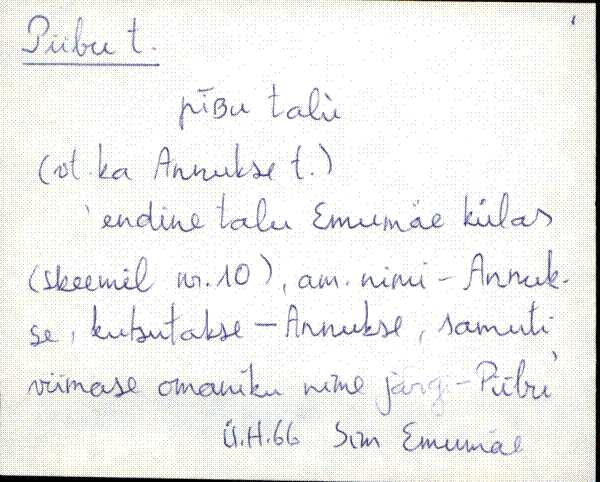 Piibu t.
pīʙu talù
(vt. ka Annukse t.)
'endine talu Emumäe külas
(skeemil nr. 10), am. nimi - Annuk-
se, kutsutakse - Annukse, samuti
viimase omaniku nime järgi - Piibu'
Ü.H.66 Sim Emumäe